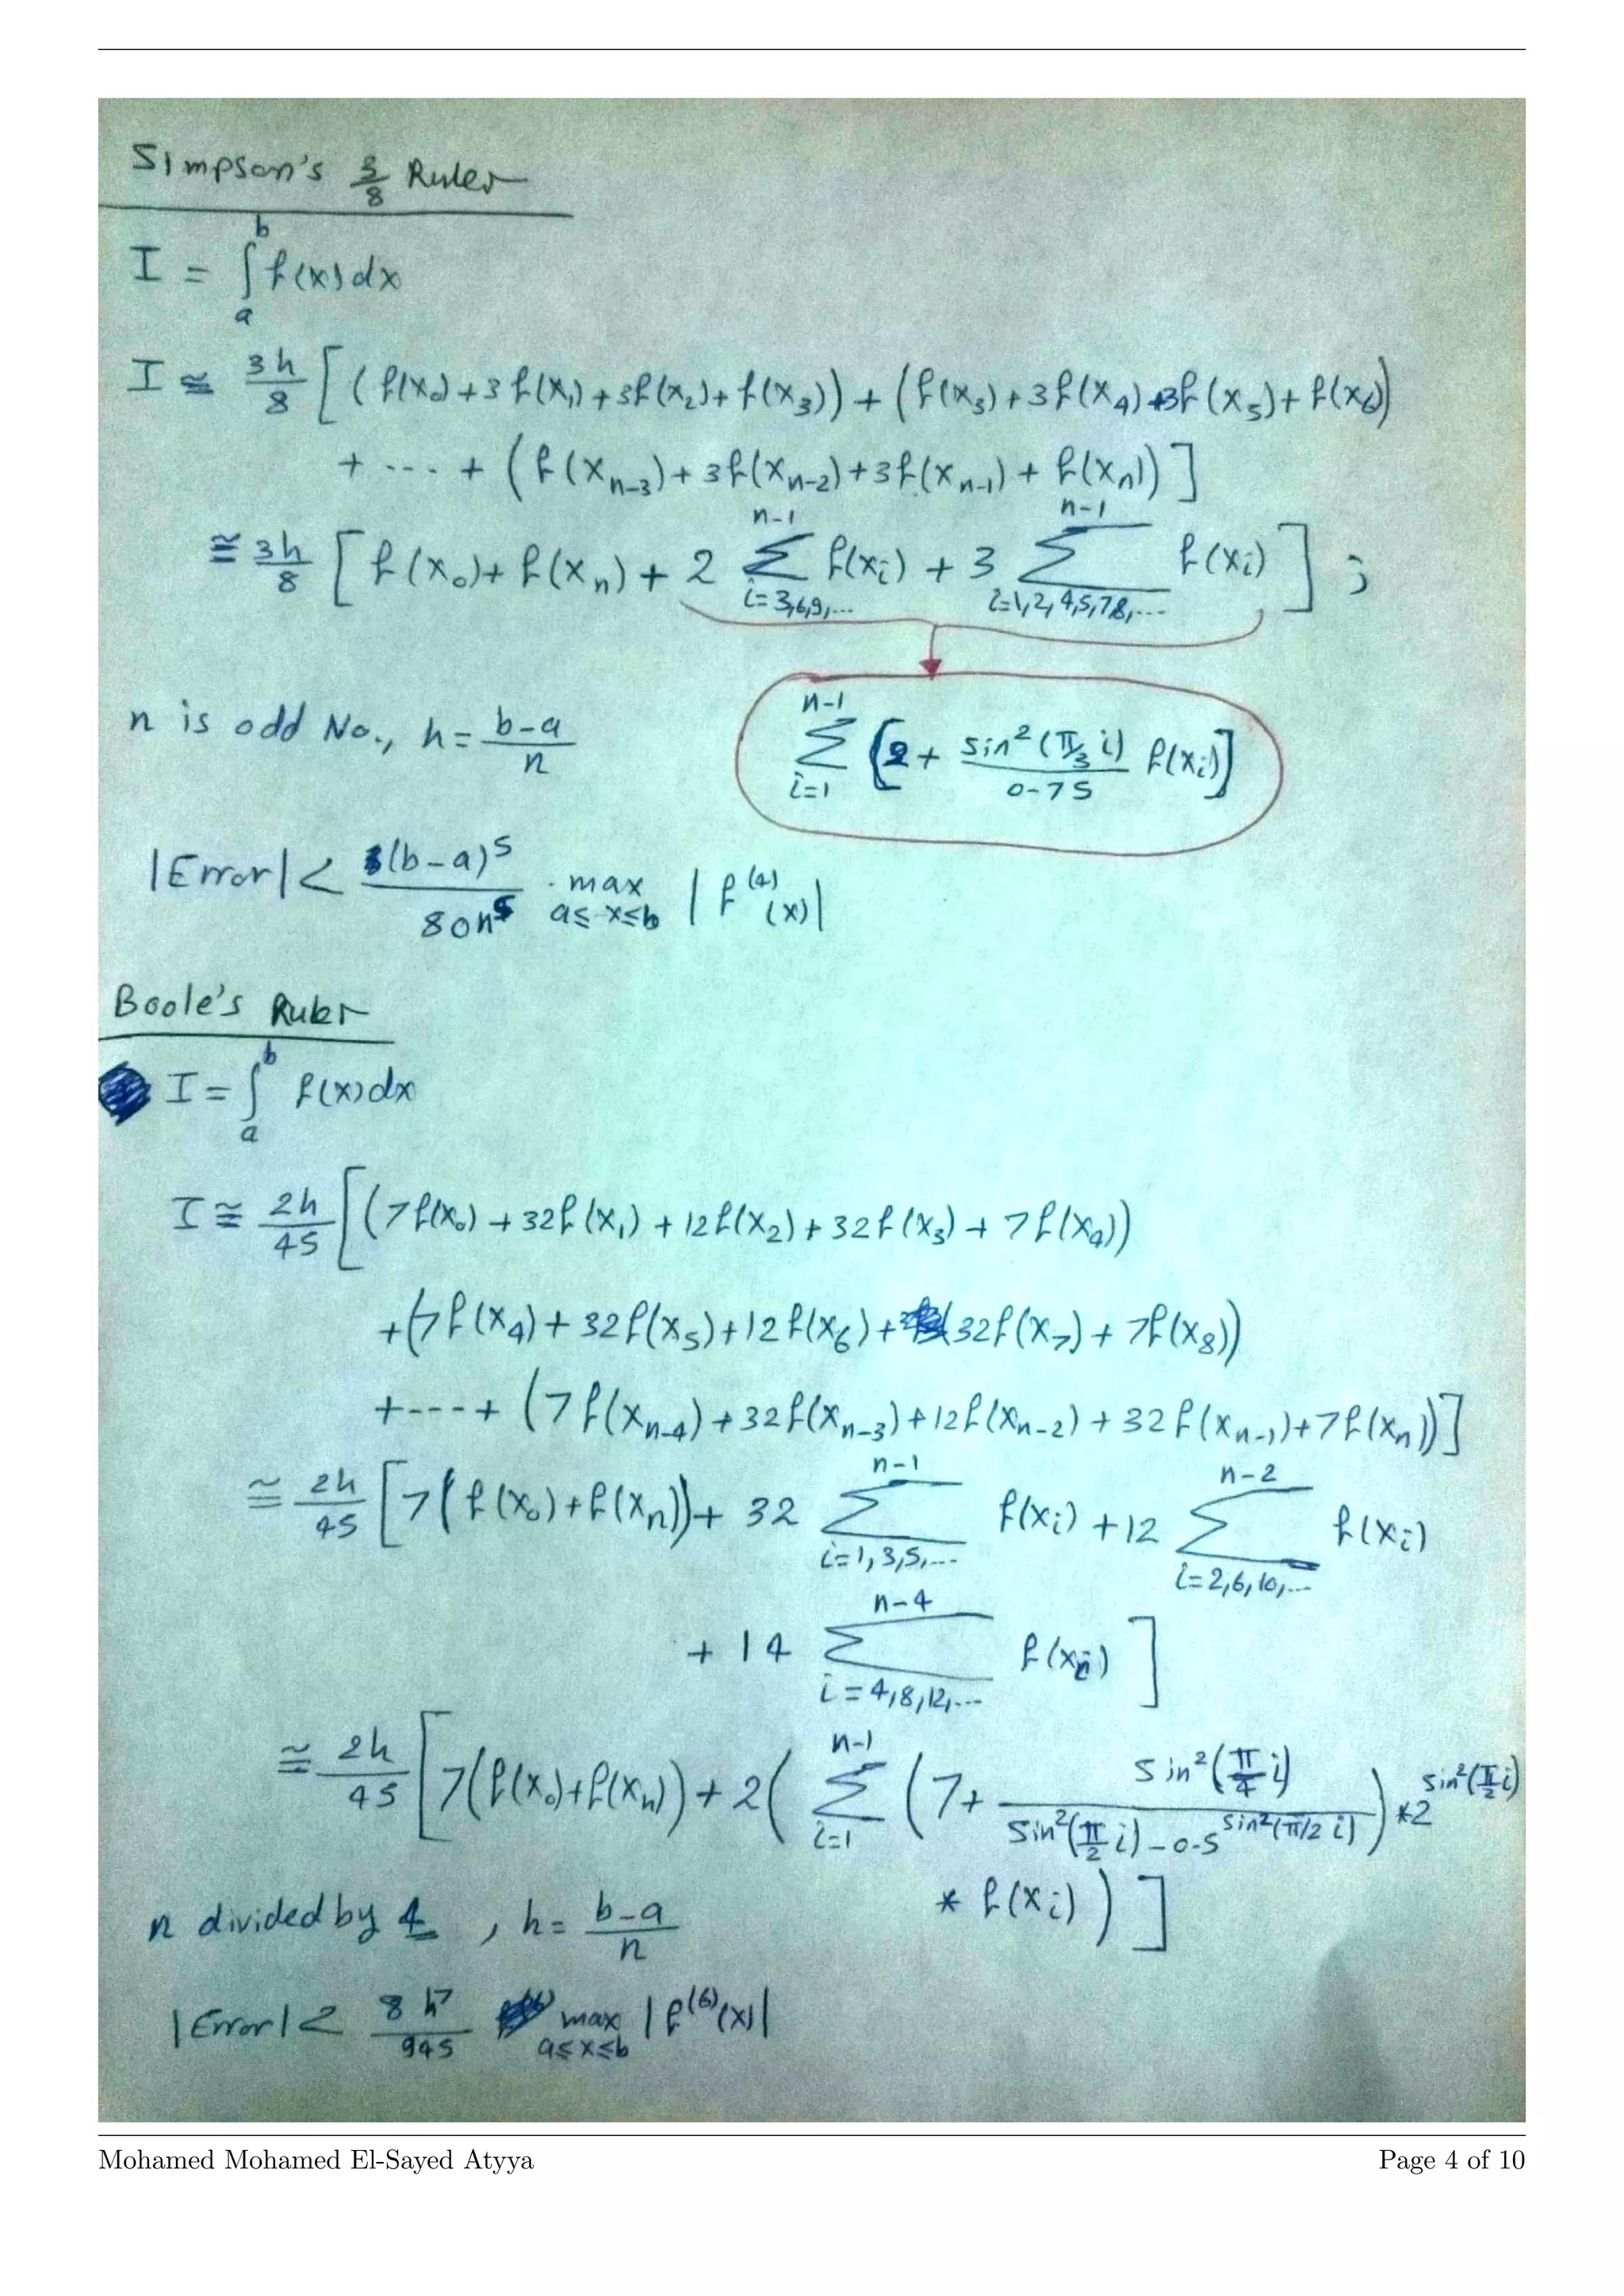 Simpson's 3/8 Ruler
I = ∫_a^b f(x)dx
I ≅ 3h/8 [(f(x₀)+3f(x₁)+3f(x₂)+f(x₃))+(f(x₃)+3f(x₄)+3f(x₅)+f(x₆))
+ --- + (f(x_{n-3})+3f(x_{n-2})+3f(x_{n-1})+f(x_n))]
≅ 3h/8 [f(x₀)+f(x_n)+2 Σ_{i=3,6,9,...}^{n-1} f(xᵢ) + 3 Σ_{i=1,2,4,5,7,8,...}^{n-1} f(xᵢ)] ;
n is odd No., h = (b-a)/n
Σ_{i=1}^{n-1} [2 + sin²(π/3 i)/0.75 f(xᵢ)]
|Error| < (b-a)⁵/80n⁵ · max_{a≤x≤b} |f⁽⁴⁾(x)|
Boole's Ruler
I = ∫_a^b f(x)dx
I ≅ 2h/45 [(7f(x₀)+32f(x₁)+12f(x₂)+32f(x₃)+7f(x₄))
+(7f(x₄)+32f(x₅)+12f(x₆)+32f(x₇)+7f(x₈))
+---+ (7f(x_{n-4})+32f(x_{n-3})+12f(x_{n-2})+32f(x_{n-1})+7f(x_n))]
≅ 2h/45 [7(f(x₀)+f(x_n))+32 Σ_{i=1,3,5,...}^{n-1} f(xᵢ)+12 Σ_{i=2,6,10,...}^{n-2} f(xᵢ)
+ 14 Σ_{i=4,8,12,...}^{n-4} f(xᵢ)]
≅ 2h/45 [7(f(x₀)+f(x_n))+2(Σ_{i=1}^{n-1} (7+ sin²(π/4 i)/(sin²(π/2 i)-0.5^{sin²(π/2 i)}))*2^{sin²(π/2 i)}
* f(xᵢ))]
n divided by 4, h = (b-a)/n
|Error| < 8h⁷/945 max_{a≤x≤b} |f⁽⁶⁾(x)|
Mohamed Mohamed El-Sayed Atyya
Page 4 of 10